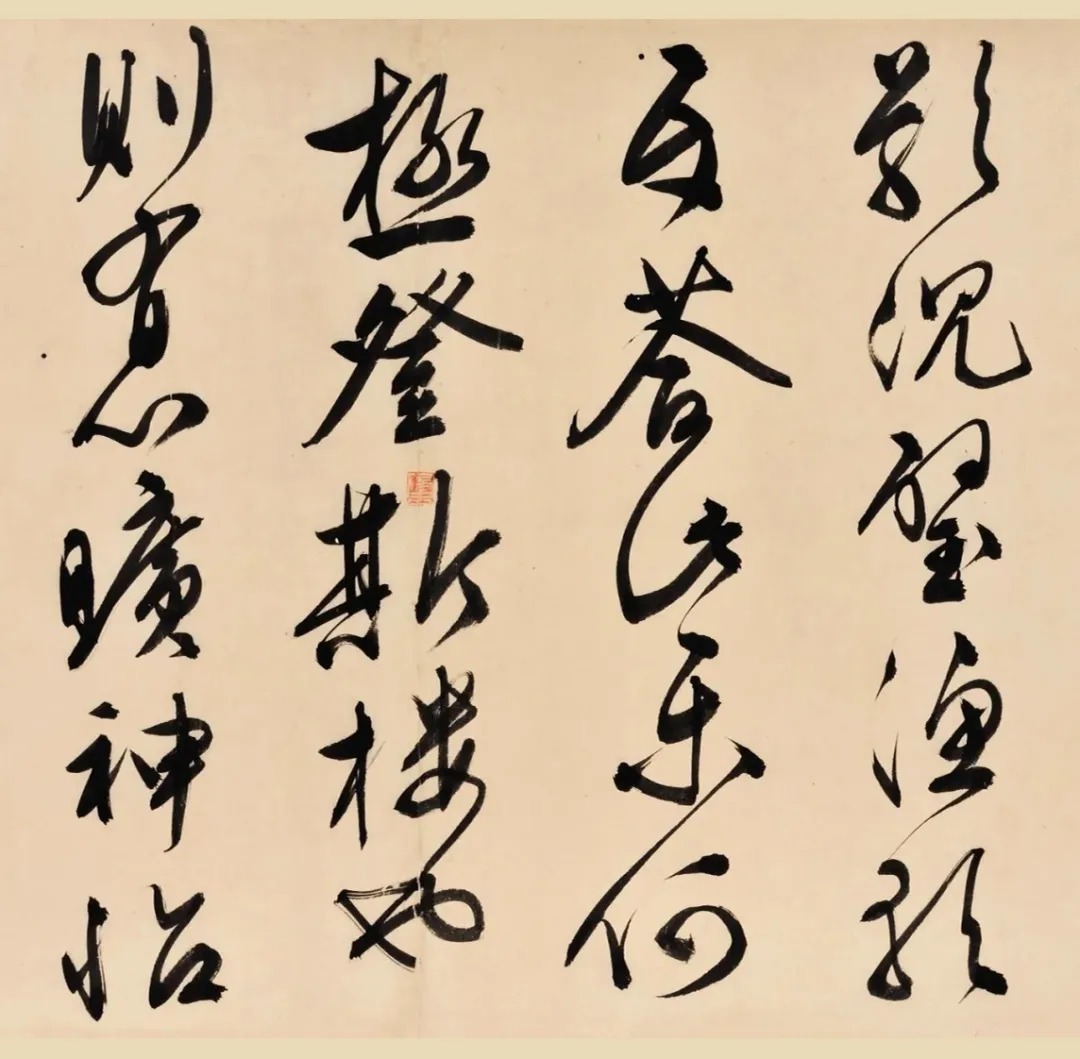 影沉璧漁歌
互荅此樂何
極登斯樓也
則有心曠神怡